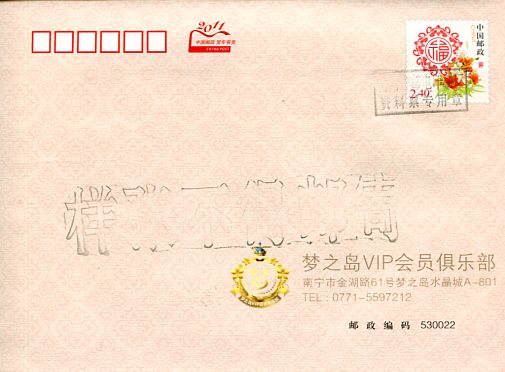 2011
中国邮政 贺年有奖
CHINA POST
中国邮政
福
2.40元
资料票专用章
梦之岛VIP会员俱乐部
南宁市金湖路61号梦之岛水晶城A-801
TEL：0771-5597212
邮政编码 530022